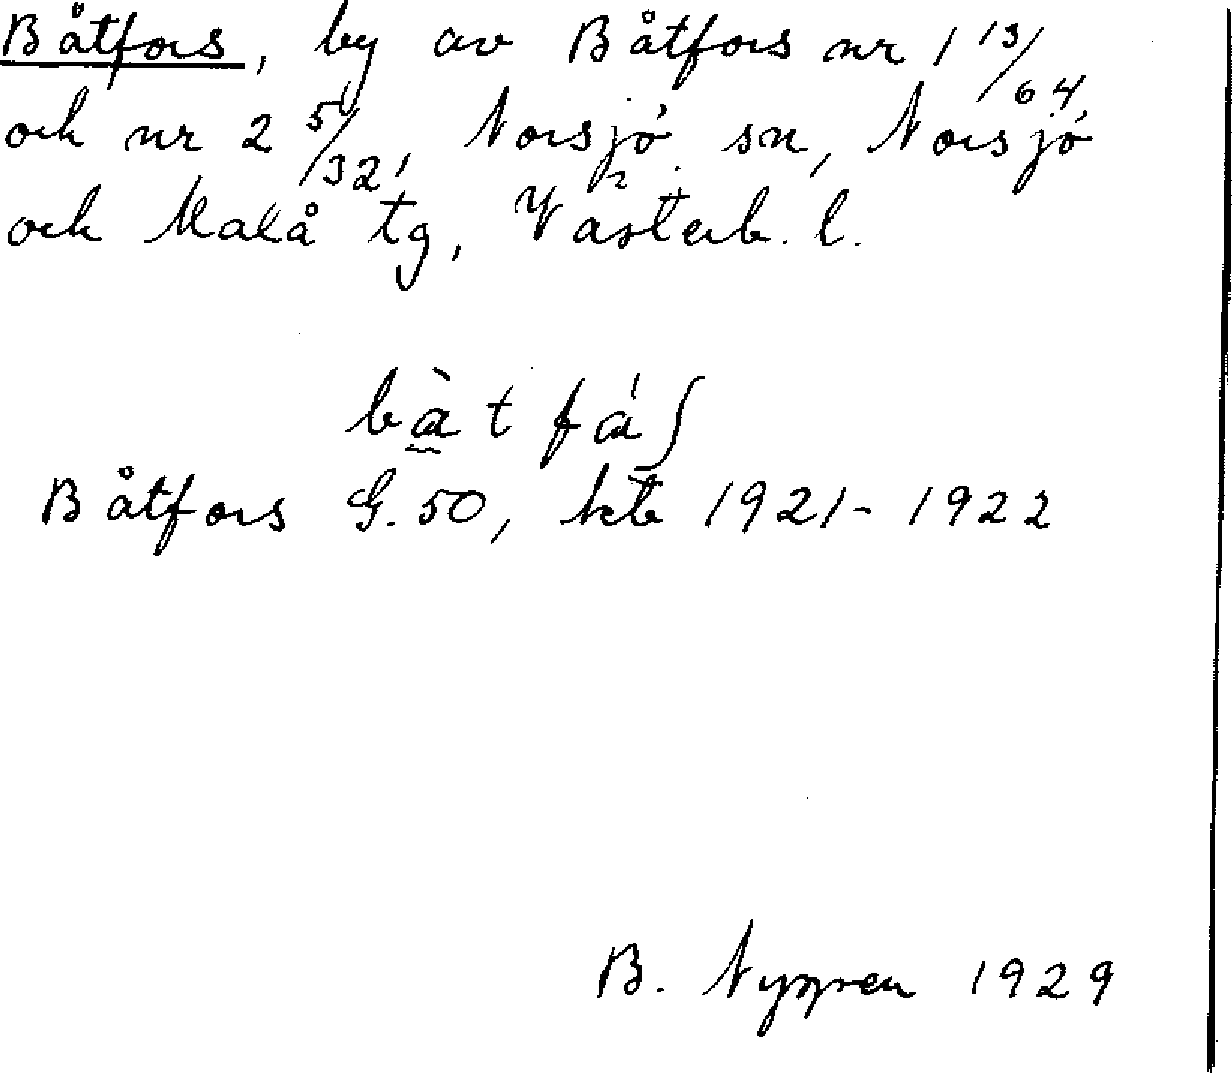 Båtfors, by av Båtfors nr 1 13/64
och nr 2 51/32, Norsjö sn, Norsjö
och Malå tg, Västerb. l.
bà̰t fáʃ
Båtfors G. 50, kte 1921-1922
B. Nygren 1929